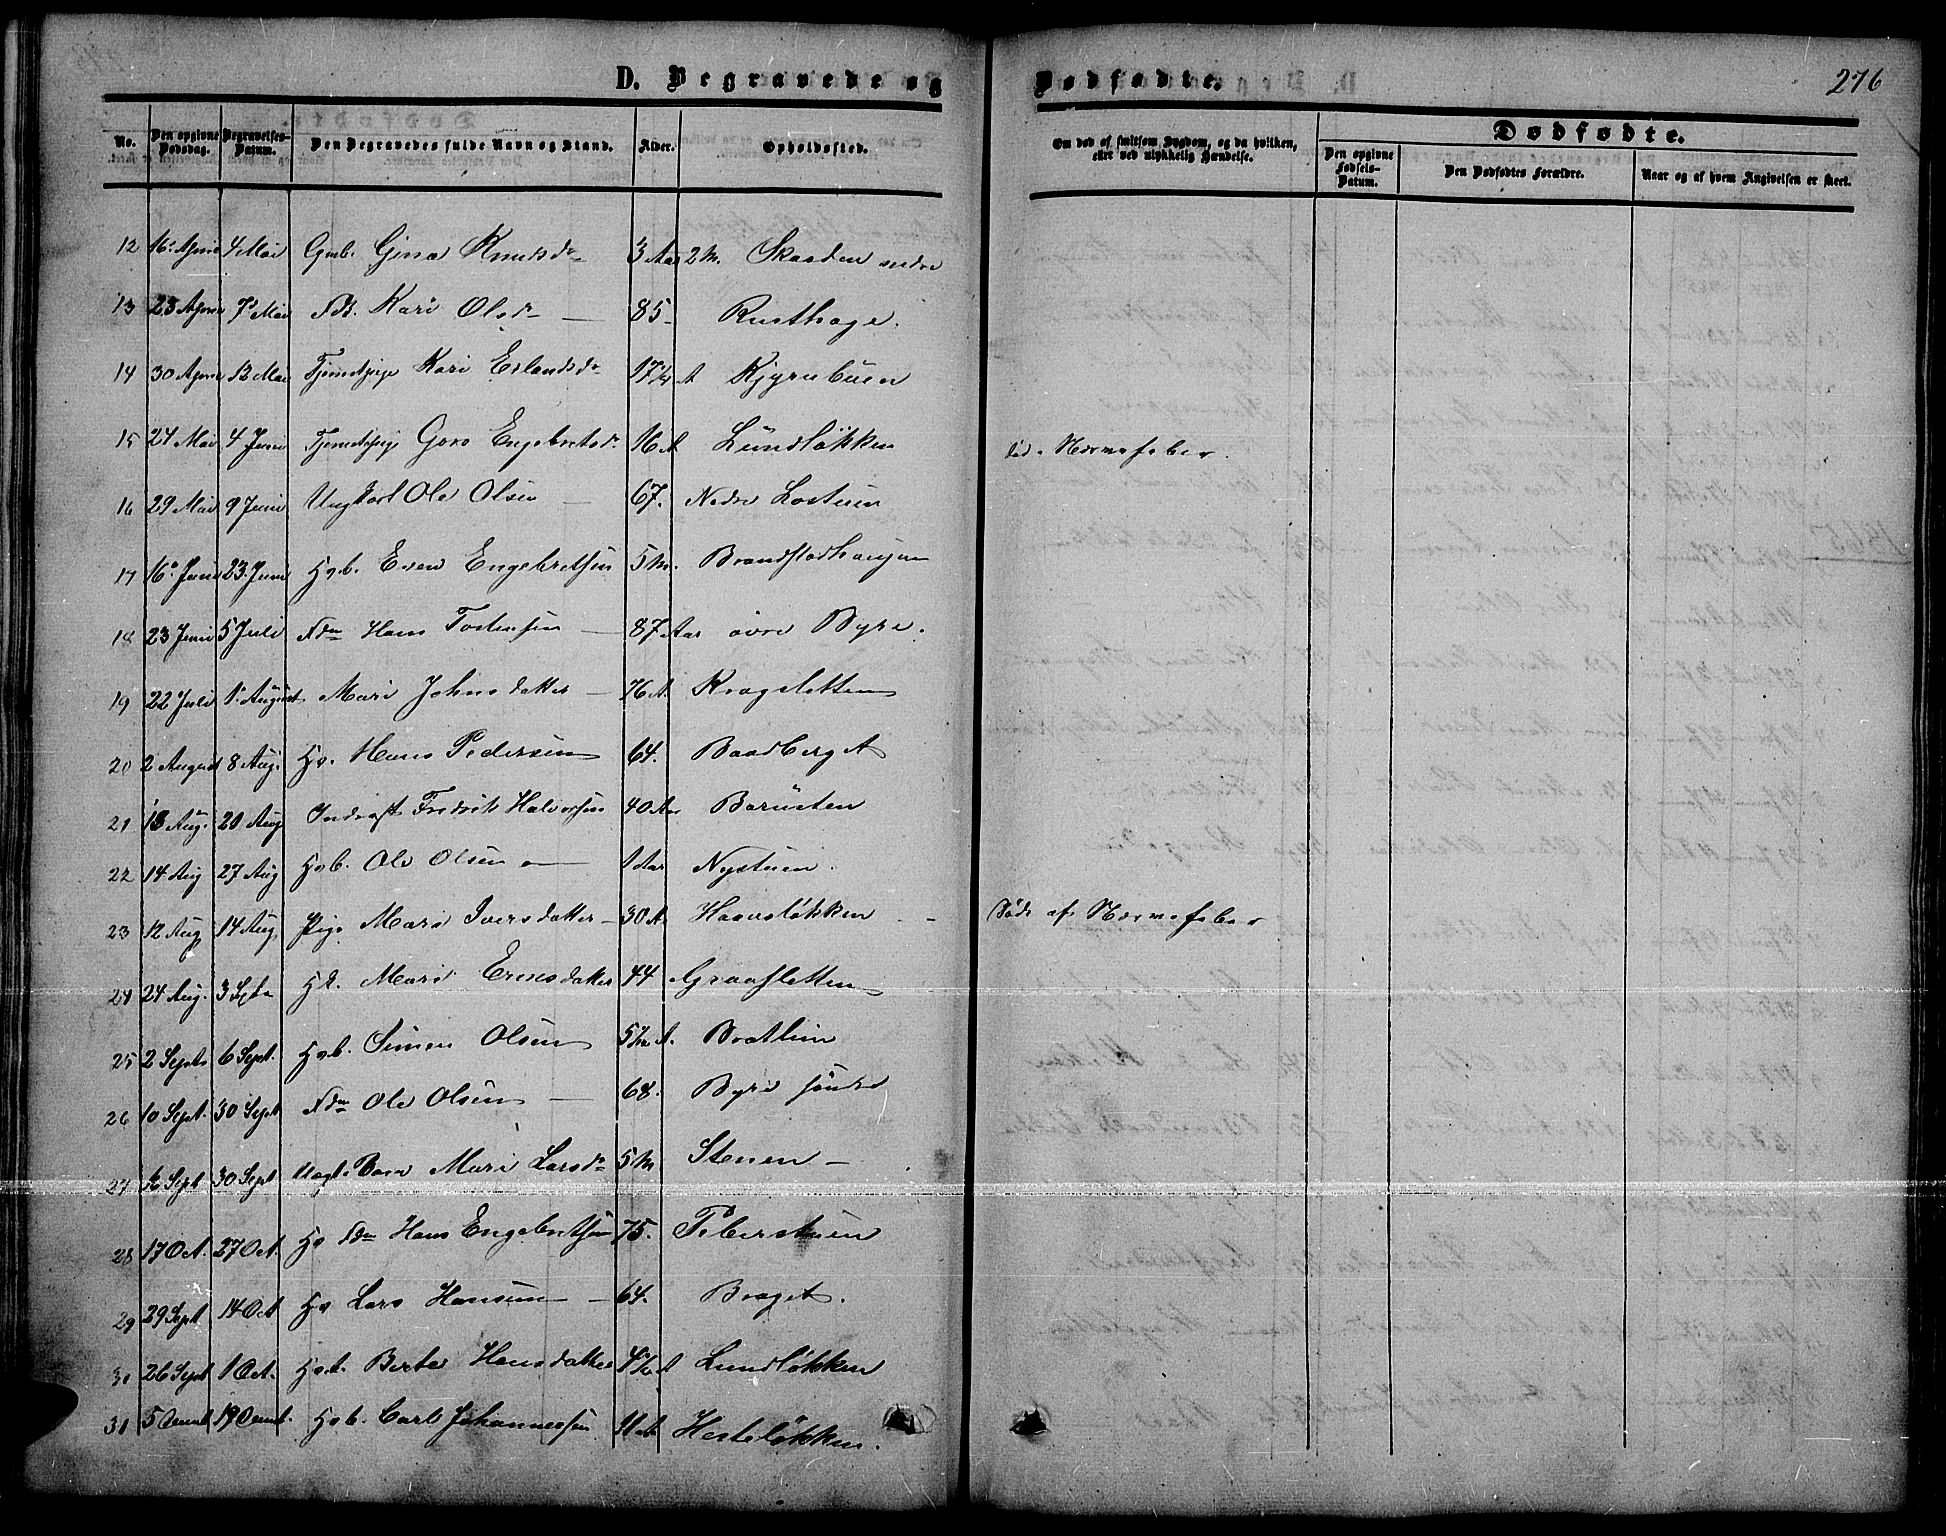 D. Begravede og Dødfødte.
276
No. Den opgivne Dødsdag. Begravelses-Datum. Den Begravedes fulde Navn og Stand. Alder. Opholdssted. Om død af smitsom Sygdom, og da hvilken, eller ved ulykkelig Hændelse. Dødfødte.
Den opgivne Fødsels-Datum. Den Dødfødtes Forældre. Naar og af hvem Angivelsen er skeet.
12 16 April 4 Mai Gmb. Gina Knudsdr 3 Aar 2 M. Skaaden nedre
13 23 April 7 Mai Kari Olsdr 85 Rusthage.
14 30 April 12 Mai Tjenestpige Kari Erlandsdr 17 A
15 24 Mai 4 Juni Tjenestpige Goro Engebretsdr 16 A Lundløkken død. Nervefeber.
16 29 Mai 9 Juni Ungkarl Ole Olsen 67. Nedre Lostuen
17 16 Juni 23 Juni Hgb. Even Engebretsen 5 M. Brandstadhaugen
18 23 Juni 5 Juli Hans Tostensen 87 Aar øvre Byre.
19 22 Juli 1 August Mari Johnsdatter 76 A. Kragsletten
20 2 August 8 Aug. Hans Pedersen 64. Baadberget
21 13 Aug. 20 Aug Inderst Fredrik Halvorsen 40 Aar Barusten
22 14 Aug 27 Aug Hgb. Ole Olsen 1 Aar Nystuen.
23 12 Aug 14 Aug Pige Mari Iversdatter 30 A Haavsløkken Døde af Nervefeber
24 24 Aug. 3 Septr Mari 44 Graasletten
25 2 Septr 6 Sept. Hgb. Simen Olsen Bratlien
26 10 Sept. 30 Sept Ole Olsen 68. Byre søndre
27 16 Sept 30 Sept Uægte Barn Mari Larsdr 5 M Stenen
28 17 Oct. 27 Oct. Hans Engebretsen 75. Piberstuen
29 29 Sept 14 Oct Lars Hansen 64. Braget.
30 26 Sept 1 Oct. Berte Hansdatter Lundløkken
31 5 19 Hgb. Carl Johannessen Hesteløkken.